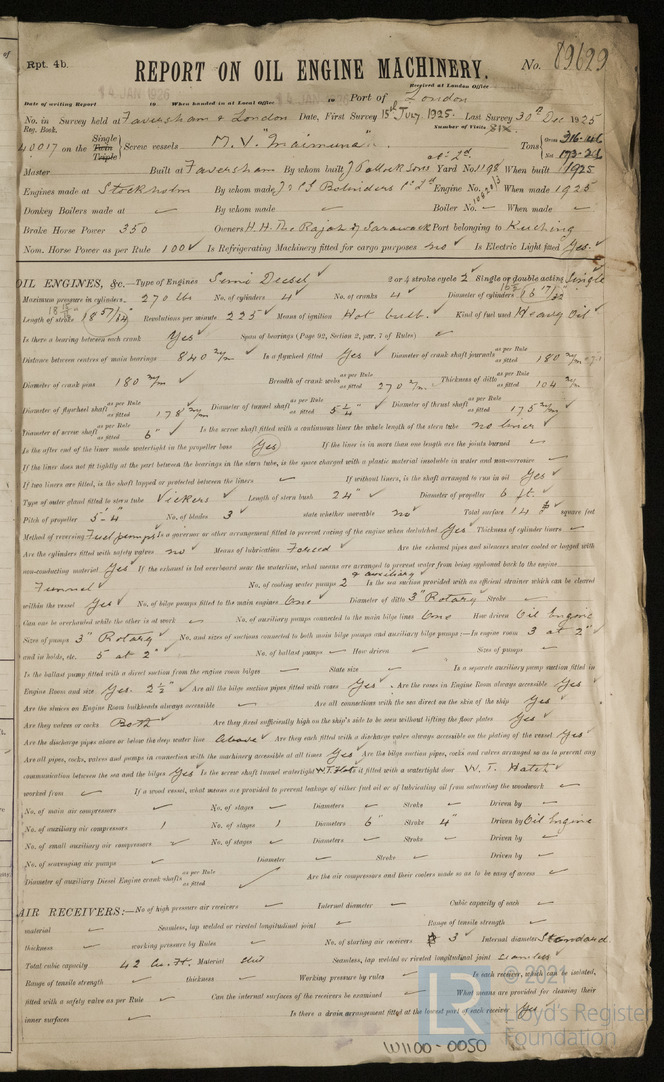 Rpt. 4b.
REPORT ON OIL ENGINE MACHINERY.
No. 89699
14 JAN 1926
Received at London Office
Date of writing Report 19 When handed in at Local Office 19 Port of London
No. in Survey held at Faversham & London Date, First Survey 15th July, 1925. Last Survey 30th Dec 1925
Reg. Book. Number of Visits Six
40017 on the Single Twin Triple Screw vessels M.V. "Maimuna". Tons Gross 316.46 Net 173.21
Master Built at Faversham By whom built J Pollock Sons & Co. Ld. Yard No. 1198 When built 1925
Engines made at Stockholm By whom made J. & C. G. Bolinders Co Ld Engine No. When made 1925
Donkey Boilers made at By whom made Boiler No. When made
Brake Horse Power 350 Owners H.H. The Rajah of Sarawak Port belonging to Kuching
Nom. Horse Power as per Rule 100 Is Refrigerating Machinery fitted for cargo purposes no Is Electric Light fitted Yes.
OIL ENGINES, &c.—Type of Engines Semi Diesel 2 or 4 stroke cycle 2 Single or double acting Single
Maximum pressure in cylinders 270 lbs No. of cylinders 4 No. of cranks 4 Diameter of cylinders
Length of stroke Revolutions per minute 225 Means of ignition Hot bulb. Kind of fuel used Heavy Oil
Is there a bearing between each crank Yes Span of bearings (Page 92, Section 2, par. 7 of Rules)
Distance between centres of main bearings 840 m/m Is a flywheel fitted Yes Diameter of crank shaft journals as per Rule as fitted 180 m/m
Diameter of crank pins 180 m/m Breadth of crank webs as per Rule as fitted 270 m/m Thickness of ditto as per Rule as fitted 104 m/m
Diameter of flywheel shaft as per Rule as fitted 178 m/m Diameter of tunnel shaft as per Rule as fitted 5 1/4" Diameter of thrust shaft as per Rule as fitted 175 m/m
Diameter of screw shaft as per Rule as fitted 6" Is the screw shaft fitted with a continuous liner the whole length of the stern tube no liner
Is the after end of the liner made watertight in the propeller boss Yes If the liner is in more than one length are the joints burned
If the liner does not fit tightly at the part between the bearings in the stern tube, is the space charged with a plastic material insoluble in water and non-corrosive
If two liners are fitted, is the shaft lapped or protected between the liners If without liners, is the shaft arranged to run in oil Yes
Type of outer gland fitted to stern tube Vickers Length of stern bush 24" Diameter of propeller 6 ft.
Pitch of propeller 5'-4" No. of blades 3 state whether moveable no Total surface 14 square feet
Method of reversing Fuel pumps Is a governor or other arrangement fitted to prevent racing of the engine when declutched Yes Thickness of cylinder liners
Are the cylinders fitted with safety valves no Means of lubrication Forced Are the exhaust pipes and silencers water cooled or lagged with
non-conducting material Yes If the exhaust is led overboard near the waterline, what means are arranged to prevent water from being syphoned back to the engine
Funnel No. of cooling water pumps 2 & auxiliary Is the sea suction provided with an efficient strainer which can be cleared
within the vessel Yes No. of bilge pumps fitted to the main engines One Diameter of ditto 3" Rotary Stroke
Can one be overhauled while the other is at work No. of auxiliary pumps connected to the main bilge lines One How driven Oil Engine
Sizes of pumps 3" Rotary No. and sizes of suctions connected to both main bilge pumps and auxiliary bilge pumps:—In engine room 3 at 2"
and in holds, etc. 5 at 2" No. of ballast pumps How driven Sizes of pumps
Is the ballast pump fitted with a direct suction from the engine room bilges State size Is a separate auxiliary pump suction fitted in
Engine Room and size Yes. 2 1/2" Are all the bilge suction pipes fitted with roses Yes. Are the roses in Engine Room always accessible Yes
Are the sluices on Engine Room bulkheads always accessible Are all connections with the sea direct on the skin of the ship Yes
Are they valves or cocks Both Are they fixed sufficiently high on the ship's side to be seen without lifting the floor plates Yes
Are the discharge pipes above or below the deep water line Above Are they each fitted with a discharge valve always accessible on the plating of the vessel Yes
Are all pipes, cocks, valves, and pumps in connection with the machinery accessible at all times Yes Are the bilge suction pipes, cocks and valves arranged so as to prevent any
communication between the sea and the bilges Yes Is the screw shaft tunnel watertight W.T. Hatch Is it fitted with a watertight door W.T. Hatch
worked from If a wood vessel, what means are provided to prevent leakage of either fuel oil or of lubricating oil from saturating the woodwork
No. of main air compressors No. of stages Diameters Stroke Driven by
No. of auxiliary air compressors 1 No. of stages 1 Diameters 6" Stroke 4" Driven by Oil Engine
No. of small auxiliary air compressors No. of stages Diameters Stroke Driven by
No. of scavenging air pumps Diameter Stroke Driven by
Diameter of auxiliary Diesel Engine crank shafts as per Rule as fitted Are the air compressors and their coolers made so as to be easy of access
AIR RECEIVERS:—No. of high pressure air receivers Internal diameter Cubic capacity of each
material Seamless, lap welded or riveted longitudinal joint Range of tensile strength
thickness working pressure by Rules No. of starting air receivers 3 Internal diameter Standard
Total cubic capacity 42 Cu. Ft. Material Steel Seamless, lap welded or riveted longitudinal joint Seamless
Range of tensile strength thickness Working pressure by rules Is each receiver, which can be isolated,
fitted with a safety valve as per Rule Can the internal surfaces of the receivers be examined What means are provided for cleaning their
inner surfaces Is there a drain arrangement fitted at the lowest part of each receiver Yes
W1100-0050
LR
© 2021
Lloyd's Register
Foundation